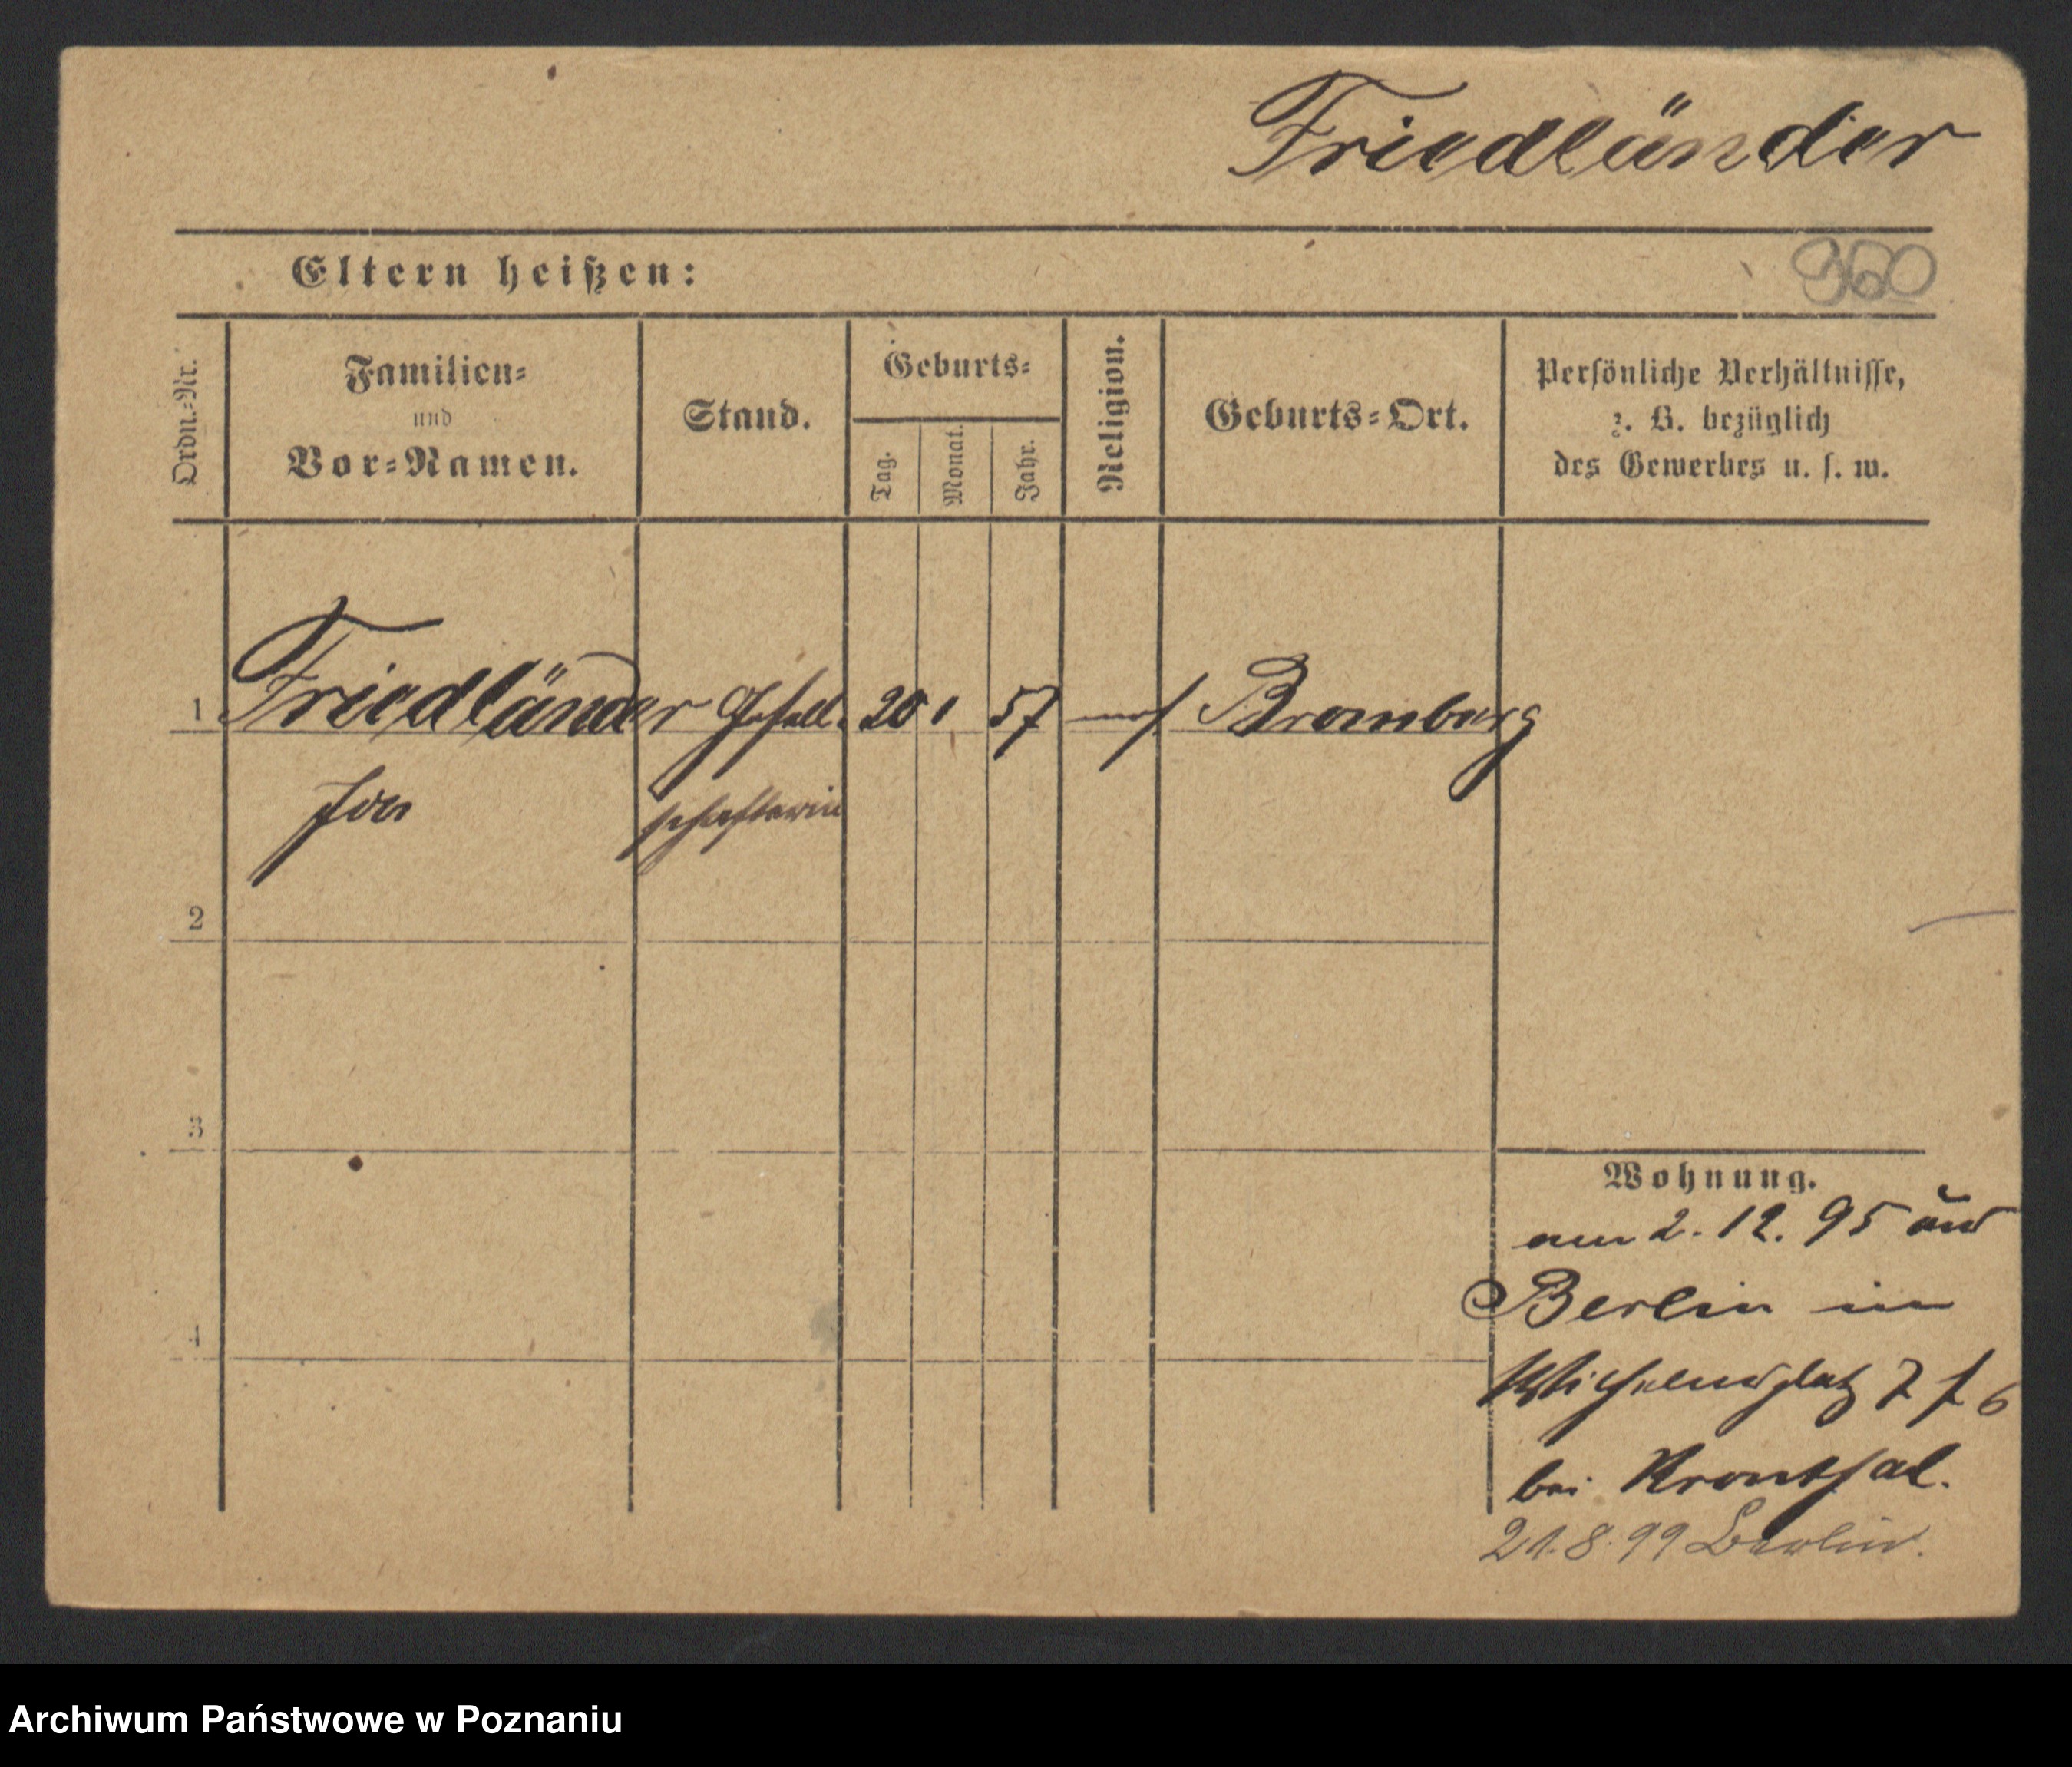 Friedländer
Eltern heißen:
960
Ordn.-Nr.
Familien-
und
Vor-Namen.
Stand.
Geburts-
Tag.
Monat.
Jahr.
Religion.
Geburts-Ort.
Persönliche Verhältnisse,
z. B. bezüglich
des Gewerbes u. s. w.
1 Friedländer Gesell- 20 1 57 mos Bromberg
schafterin
2
3
4
Wohnung.
am 2. 12. 95 aus
Berlin in
Wilhelmsplatz 7
bei Kronthal.
21. 8. 99 Berlin.
Archiwum Państwowe w Poznaniu